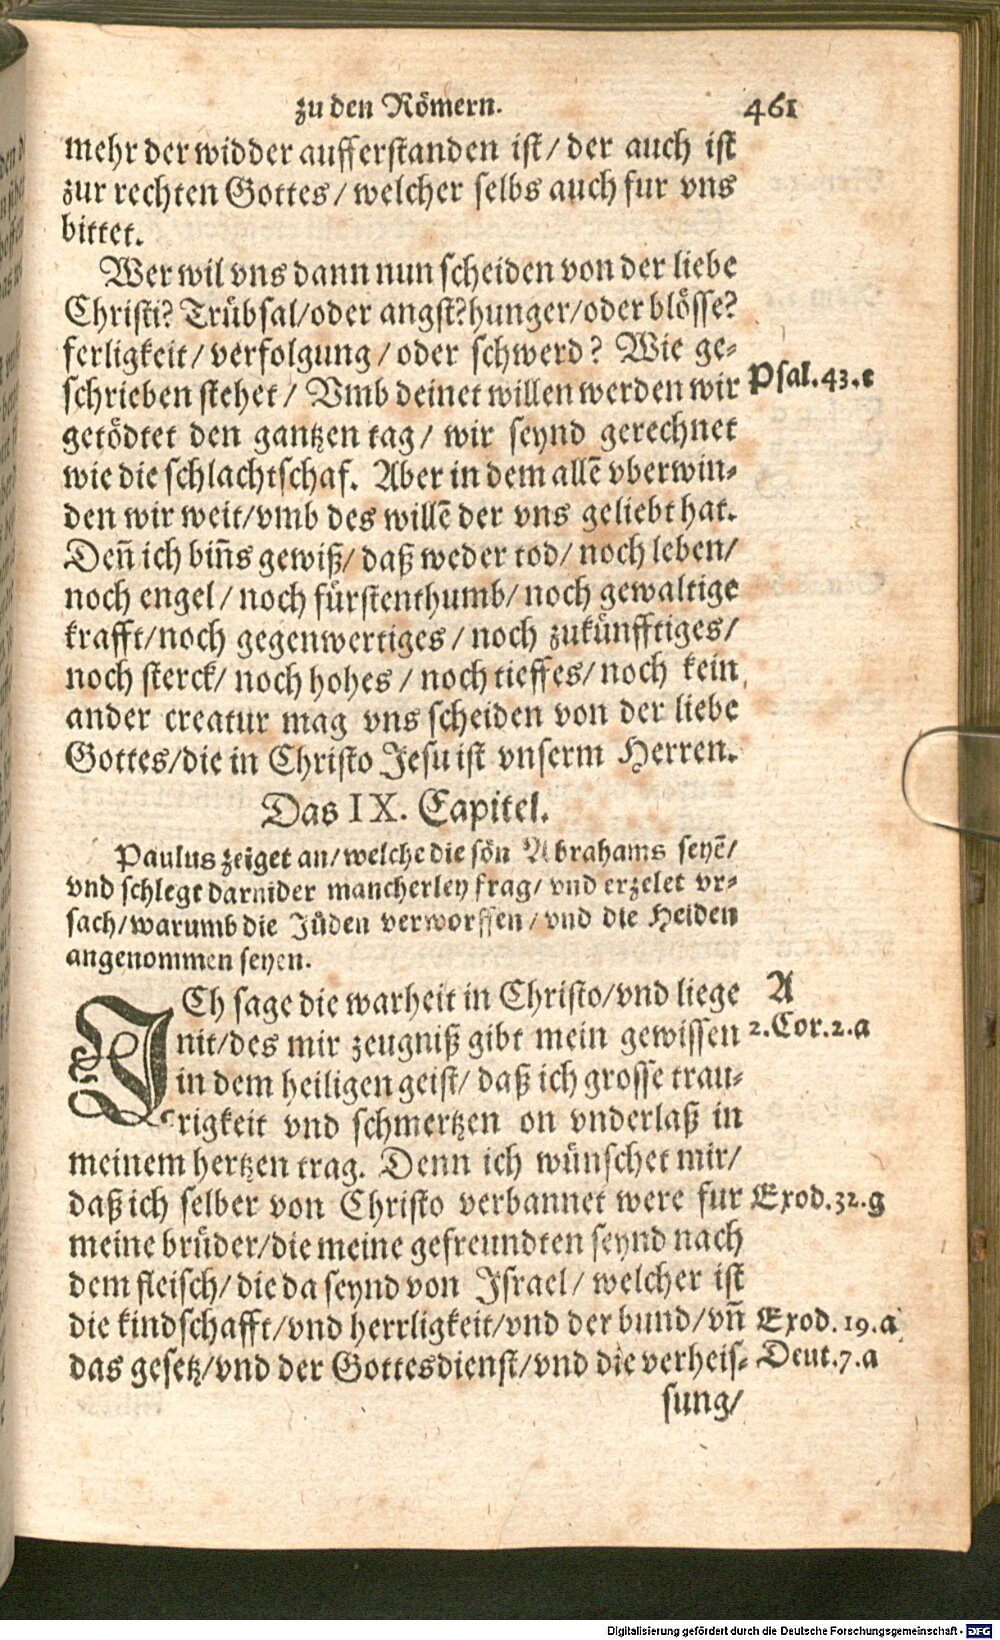 zu den Römern. 461
mehr der widder aufferstanden ist/ der auch ist
zur rechten Gottes/ welcher selbs auch fur vns
bittet.
Wer wil vns dann nun scheiden von der liebe
Christi? Trübsal/oder angst?hunger/oder blösse?
ferligkeit/ verfolgung/oder schwerd? Wie ge-
schrieben stehet/ Vmb deinet willen werden wir Psal.43.e
getödtet den gantzen tag/ wir seynd gerechnet
wie die schlachtschaf. Aber in dem allē vberwin-
den wir weit/vmb des willē der vns geliebt hat.
Den̄ ich bin̄s gewiß/ daß weder tod/ noch leben/
noch engel/ noch fürstenthumb/ noch gewaltige
krafft/noch gegenwertiges/ noch zukünfftiges/
noch sterck/ noch hohes/ noch tieffes/ noch kein
ander creatur mag vns scheiden von der liebe
Gottes/die in Christo Jesu ist vnserm Herren.
Das IX. Capitel.
Paulus zeiget an/welche die sön Abrahams seyē/
vnd schlegt darnider mancherley frag/ vnd erzelet vr-
sach/warumb die Jüden verworffen/vnd die Heiden
angenommen seyen.
ICh sage die warheit in Christo/vnd liege A
nit/des mir zeugniß gibt mein gewissen 2.Cor.2.a
in dem heiligen geist/ daß ich grosse trau-
rigkeit vnd schmertzen on vnderlaß in
meinem hertzen trag. Denn ich wünschet mir/
daß ich selber von Christo verbannet were fur Exod.32.g
meine brüder/die meine gefreundten seynd nach
dem fleisch/ die da seynd von Israel/ welcher ist
die kindschafft/vnd herrligkeit/vnd der bund/vn̄ Exod.19.a
das gesetz/vnd der Gottesdienst/vnd die verheis- Deut.7.a
sung/
Digitalisierung gefördert durch die Deutsche Forschungsgemeinschaft - DFG